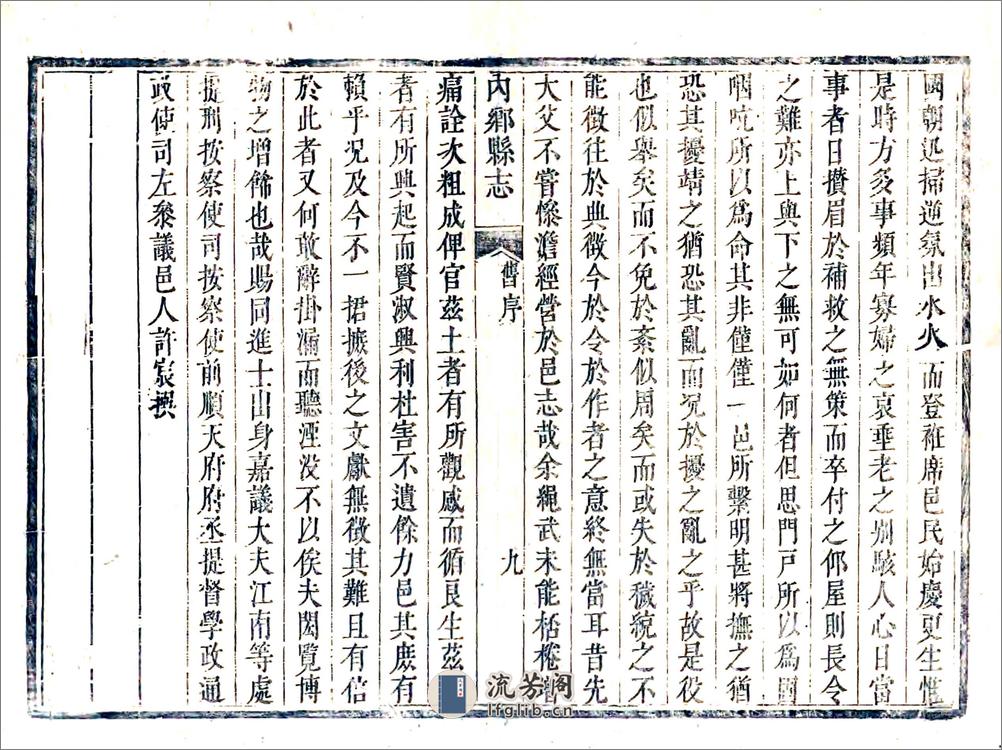 國朝迅掃逆氛出水火而登袵席邑民始慶更生惟
是時方多事頻年寡婦之哀垂老之别駭人心目當
事者日攢眉於補救之無策而卒付之仰屋則長令
之難亦上與下之無可如何者但思門戸所以爲
咽吭所以爲命其非僅僅一邑所繫明甚將撫之猶
恐其擾靖之猶恐其亂而况於擾之亂之乎故是役
也似舉矣而不免於紊似周矣而或失於穢統之不
能徵往於典徵今於令於作者之意終無當耳昔先
大父不嘗慘澹經營於邑志哉余繩武未能栝棬
内鄉縣志
舊序
九
痛詮次粗成俾官茲土者有所觀感而循良生茲
者有所興起而賢淑興利杜害不遺餘力邑其庶有
賴乎况及今不一捃摭後之文獻無徵其難且有倍
於此者又何敢辭掛漏而聽湮没不以俟夫閎覧博
物之增餙也哉賜同進士出身嘉議大夫江南等處
提刑按察使司按察使前順天府府丞提督學政通
政使司左叅議邑人許宸撰
流芳阁
lfglib.cn